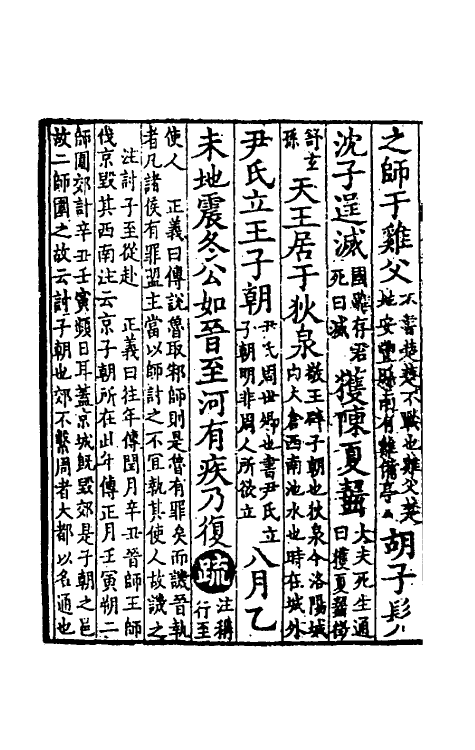 之師于雞父不書楚楚不戰也雞父楚地安豐縣南有雞備亭胡子髠
沈子逞滅國雖存君死曰滅獲陳夏齧大夫死生通曰獲夏齧徵
舒玄孫天王居于狄泉敬王辟子朝也狄泉今洛陽城内大倉西南池水也時在城外
尹氏立王子朝尹氏周世卿也書尹氏立子朝明非周人所欲立八月乙
未地震冬公如晉至河有疾乃復疏注稱行至
使人 正義曰傳說魯取邾師則是魯有罪矣而譏晉執
者凡諸侯有罪盟主當以師討之不宜執其使人故譏之
注討子至從赴 正義曰往年傳閏月辛丑晉師王師
伐京毁其西南注云京子朝所在此年傳正月壬寅朔二
師圍郊計辛丑壬寅頻日耳蓋京城既毁郊是子朝之邑
故二師圍之故云討子朝也郊不繫周者大都以名通也